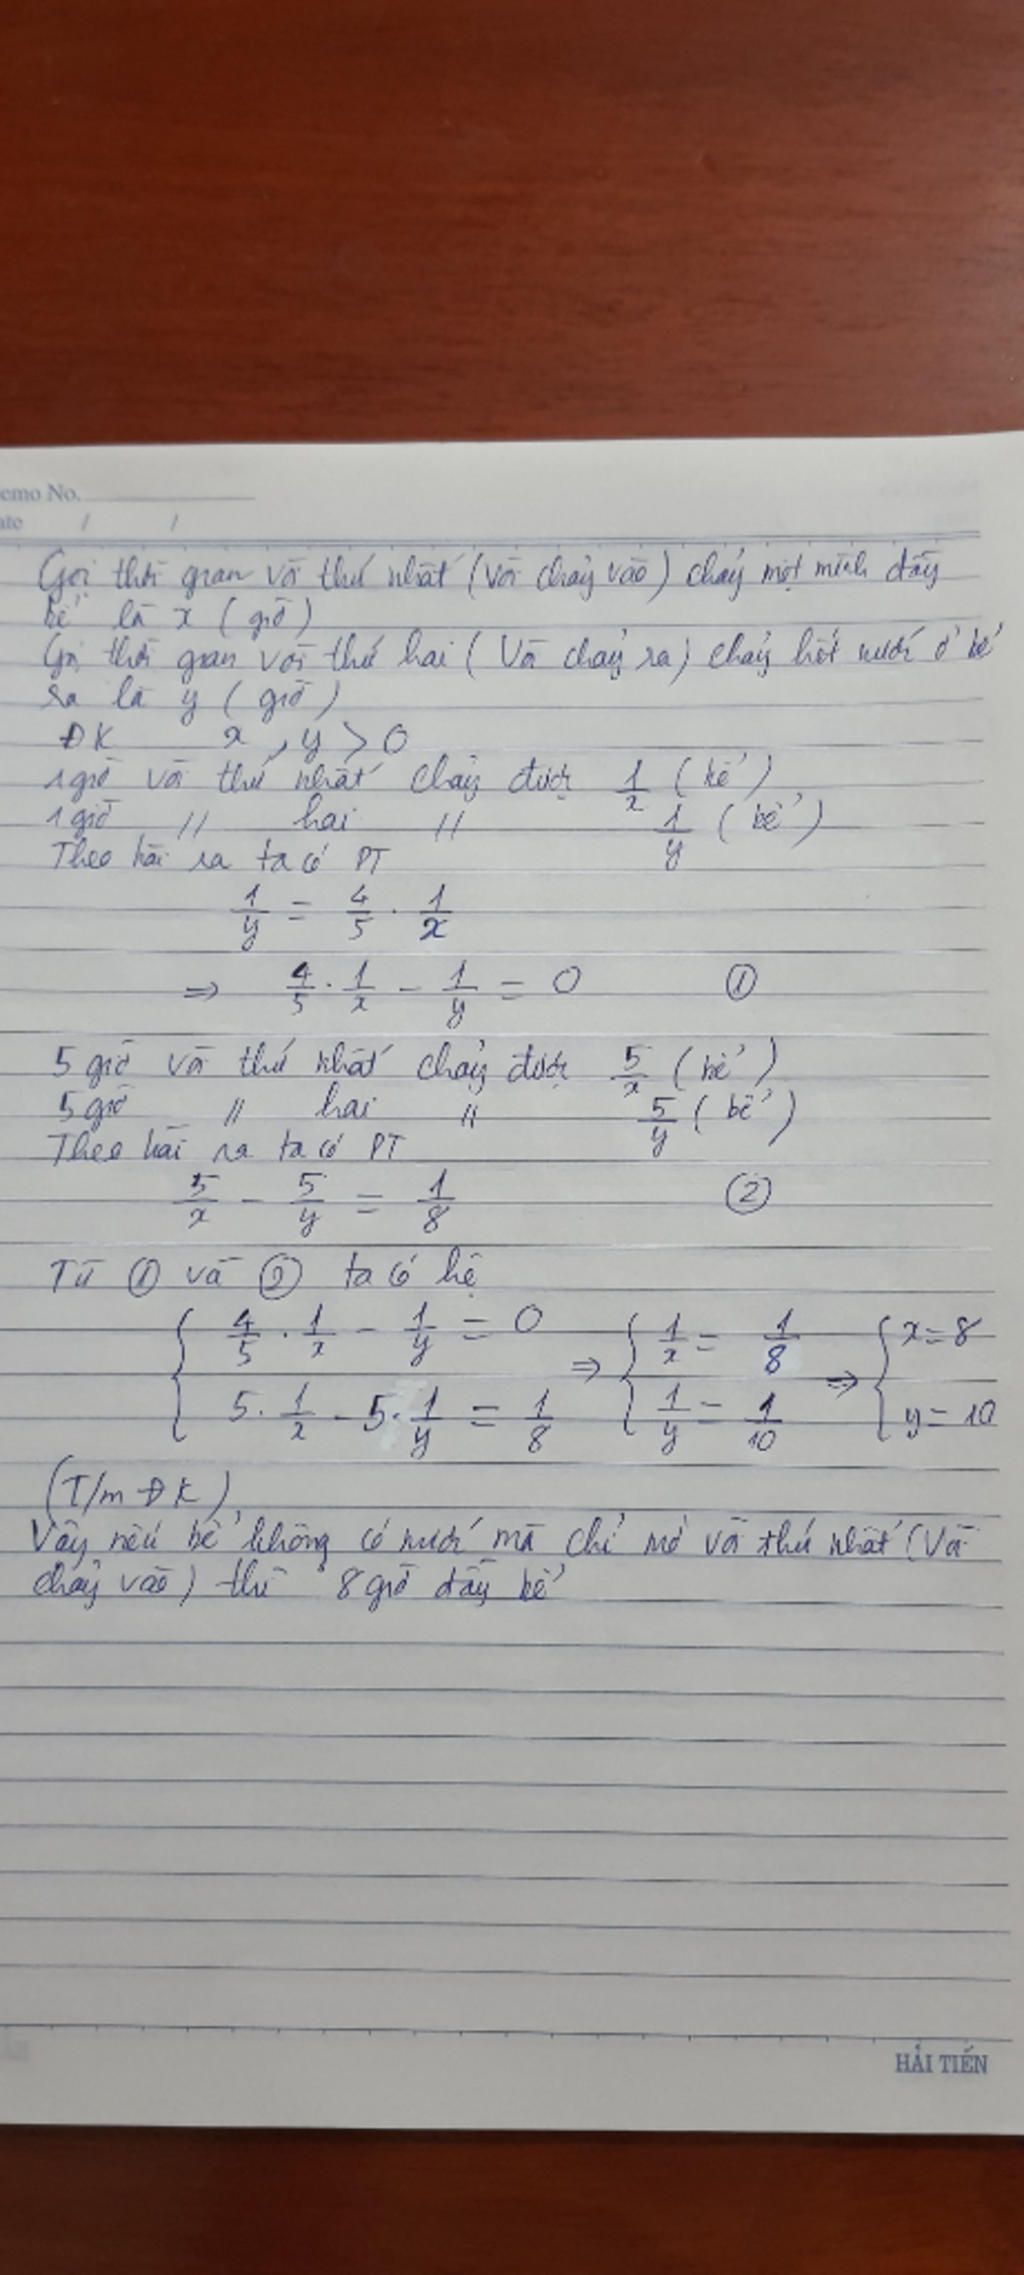 emo No.
ate / /
Gọi thời gian vòi thứ nhất (vòi chảy vào) chảy một mình đầy
bể là x (giờ)
Gọi thời gian vòi thứ hai (Vòi chảy ra) chảy hết nước ở bể
ra là y (giờ)
ĐK x, y > 0
1 giờ vòi thứ nhất chảy được 1/x (bể)
1 giờ // hai // 1/y (bể)
Theo bài ra ta có PT
1/y = 4/5 . 1/x
⇒ 4/5 . 1/x - 1/y = 0 ①
5 giờ vòi thứ nhất chảy được 5/x (bể)
5 giờ // hai // 5/y (bể)
Theo bài ra ta có PT
5/x - 5/y = 1/8 ②
Từ ① và ② ta có hệ
{ 4/5 . 1/x - 1/y = 0 ⇒ { 1/x = 1/8 ⇒ { x = 8
5 . 1/x - 5 . 1/y = 1/8 1/y = 1/10 y = 10
(T/m ĐK)
Vậy nếu bể không có nước mà chỉ mở vòi thứ nhất (Vòi
chảy vào) thì 8 giờ đầy bể
HẢI TIẾN